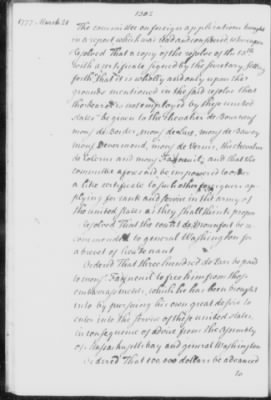 1777 March 20
The committee on foreign applications brought
in a report which was read and considered whereupon
Resolved That a copy of the resolve of the 13th
with a certificate signed by the secretary setting
forth that it is wholly and only upon the
grounds mentioned in the said resolve that
the bearer is not employed by these united
states be given to the Chevalier de
mons de mons mons de
mons mons de Vernis, the chevalier
de and mons Fayneuil; and that the
committee aforesaid be empowered to
a like certificate to such other foreigners ap-
plying for rank and service in the army of
the united states as they shall think proper
Resolved That the count de Monfort be re
commended to general Washington for
a brevet of lieutenant
Ordered That three hundred dollars be paid
to mons Fayneuil to free him from those
embarrassments, which he has been brought
into by pursuing his own great desire to
enter into the service of these united states,
in consequence of advice from the assembly
of Massachusetts bay and general Washington
Ordered That 500,000 dollars be advanced
to